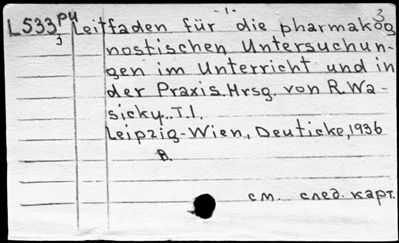 - 1. -
L533 ри Leitfaden für die pharmakog
3 3
nostischen Untersuchun-
gen im Unterricht und in
der Praxis. Hrsg. von R. Wa-
sicky. T. I.
Leipzig-Wien, Deuticke, 1936
B.
см. след. карт.